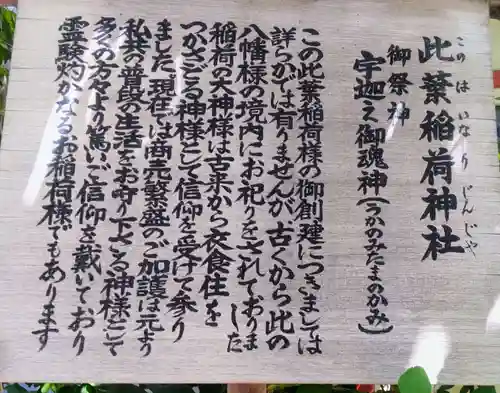 此葉稲荷神社
このはいなりじんじゃ
御祭神
宇迦之御魂神(うかのみたまのかみ)
この此葉稲荷様の御創建につきましては
詳らかでは有りませんが古くから此の
八幡様の境内にお祀りをされておりました
稲荷の大神様は古来から衣食住を
つかさどる神様として信仰を受けて参り
ました現在では商元繁盛のご加護は元より
私共の普段の生活をお守り下さる神様として
多くの方々より篤いご信仰を戴いており
霊験灼かなるお稲荷様でもあります